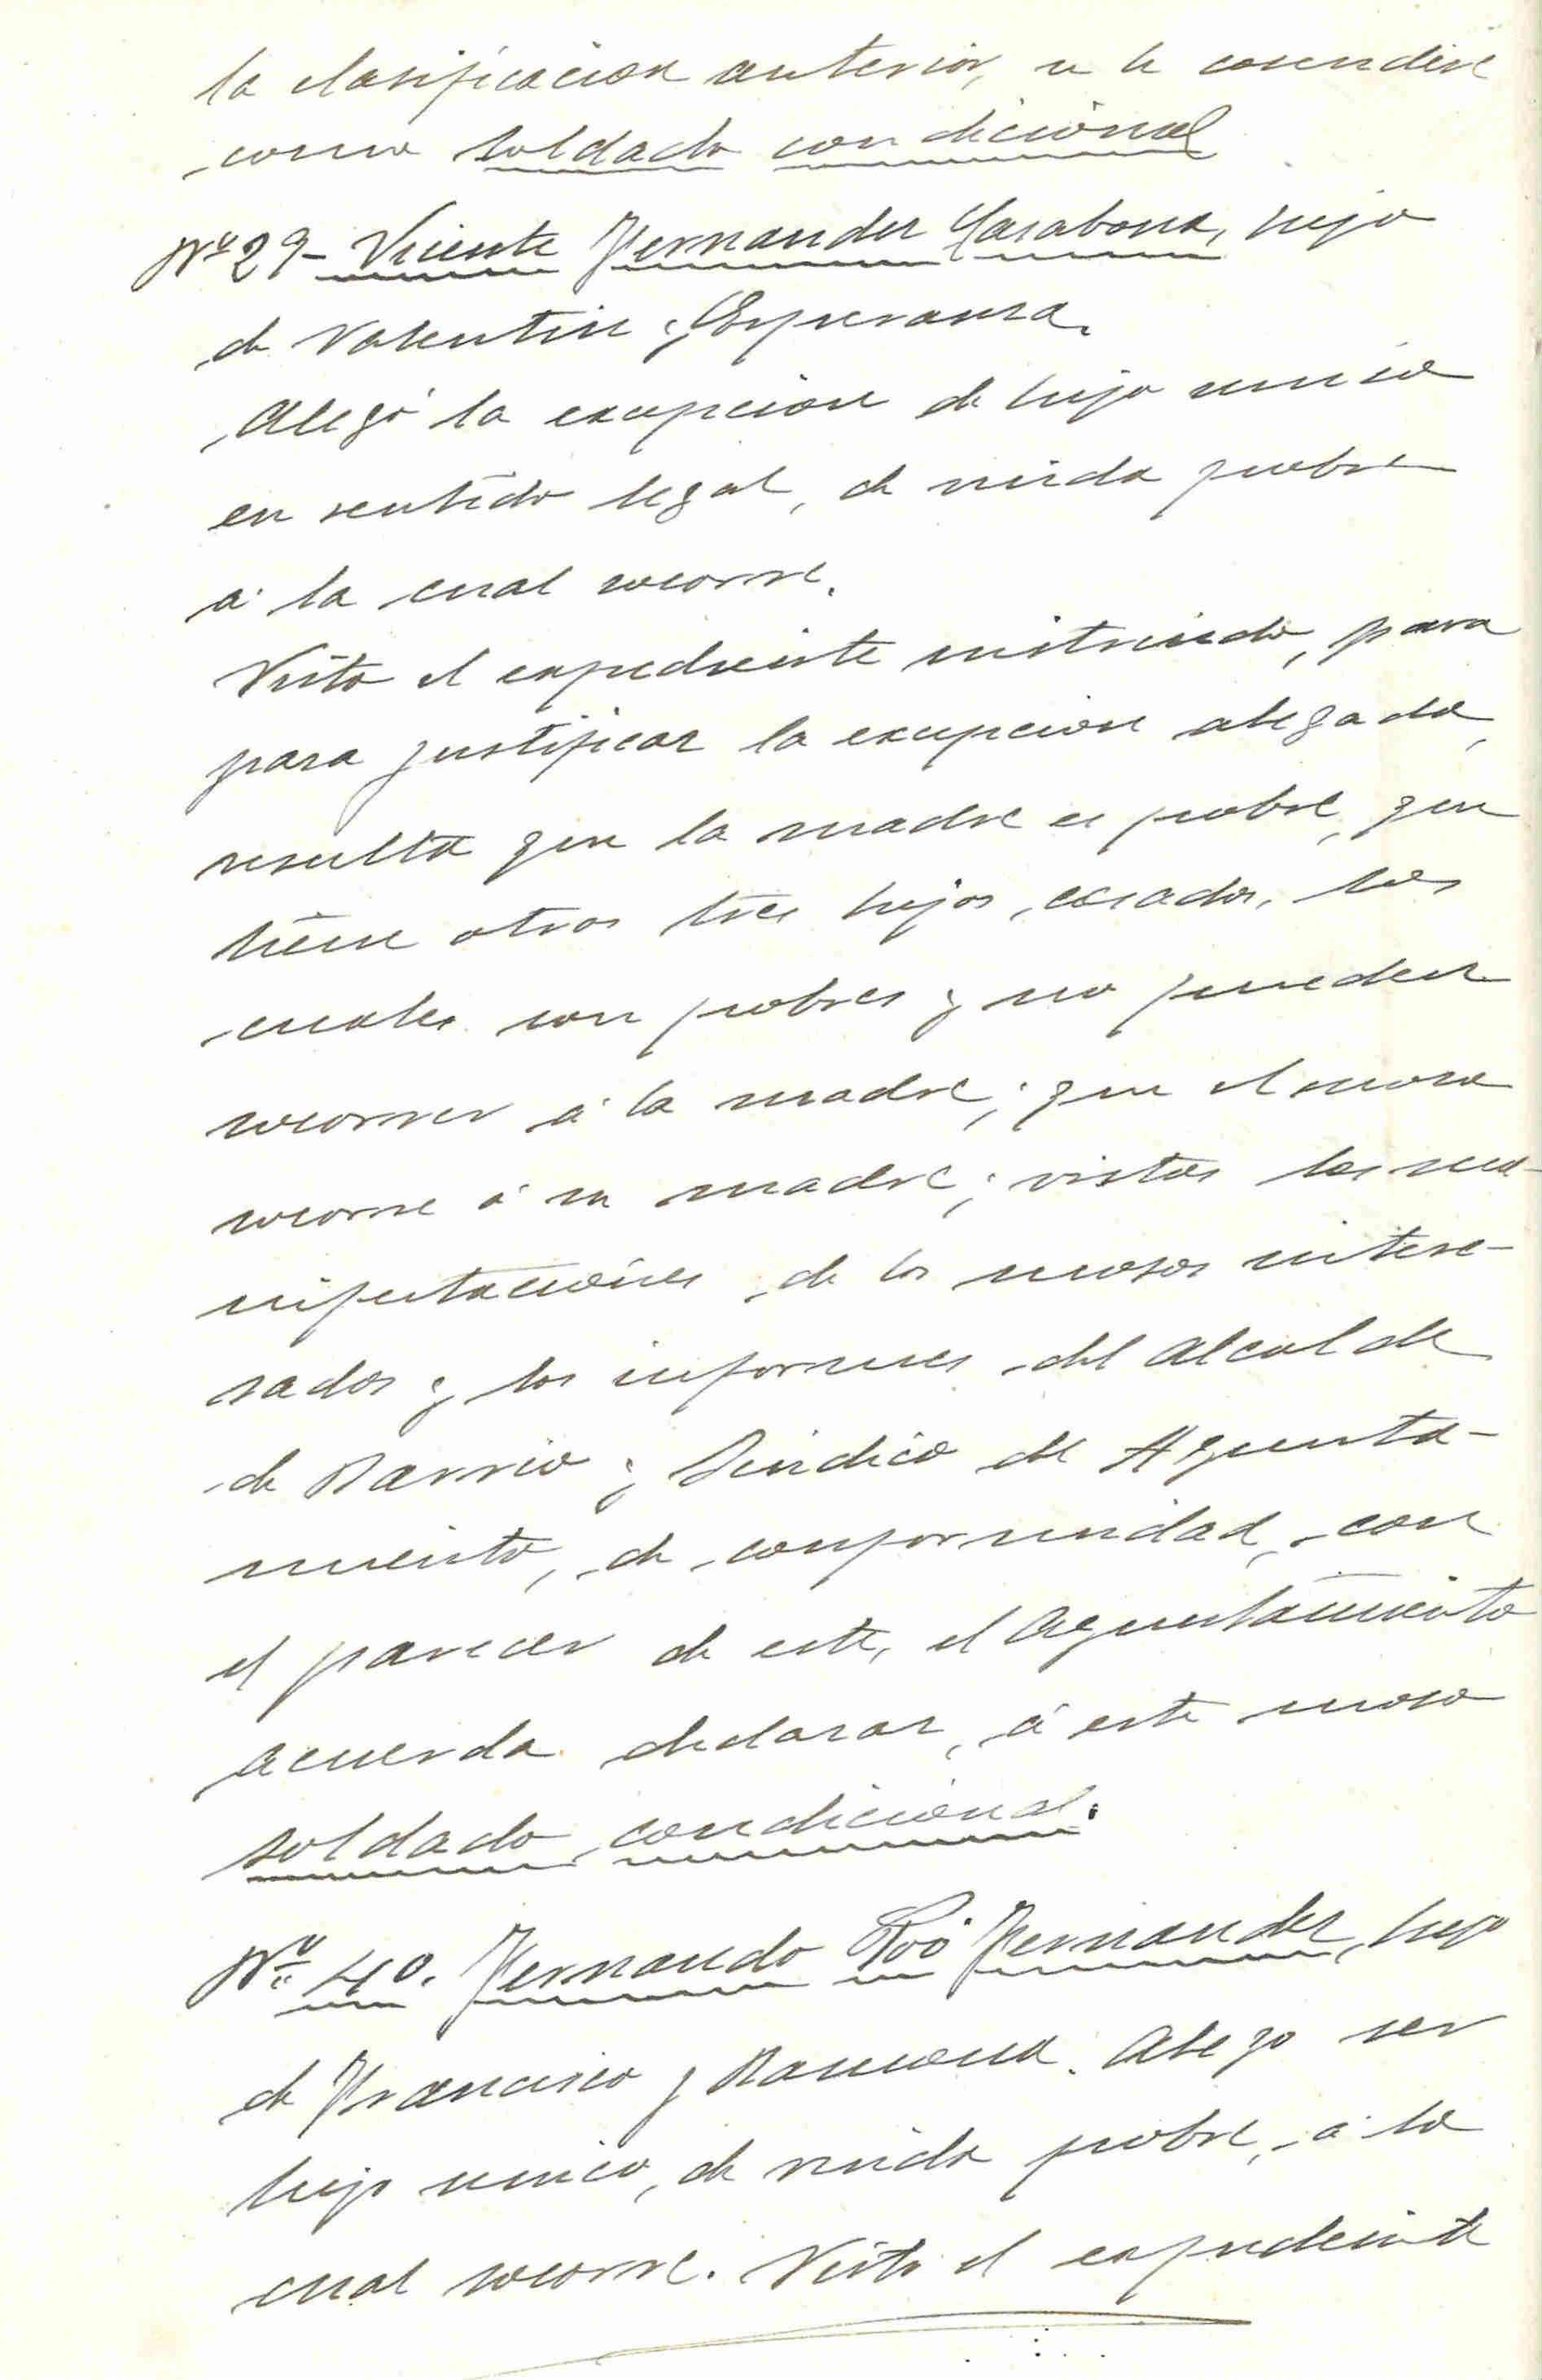 la clasificacion anterior, se le considere
como soldado condicional
Nº 29 - Vicente Fernandez Carabaza, hijo
de Valentin y Esperanza.
Alegó la excepcion de hijo unico
en sentido legal, de viuda pobre
á la cual socorre.
Visto el expediente instruido, para
para justificar la excepcion alegada,
resulta que la madre es pobre, que
tiene otros tres hijos, casados, los
cuales son pobres y no pueden
socorrer á la madre; que el mozo
socorre á su madre; vistas las ma-
nifestaciones de los mozos intere-
sados y los informes del Alcalde
de Barrio y Sindico del Ayunta-
miento, de conformidad, con
el parecer de este, el Ayuntamiento
acuerda declarar, á este mozo
soldado condicional.
Nº 40. Fernando Poó Fernandez, hijo
de Francisco y Ramona. Alego ser
hijo unico, de viuda pobre, á la
cual socorre. Visto el expediente